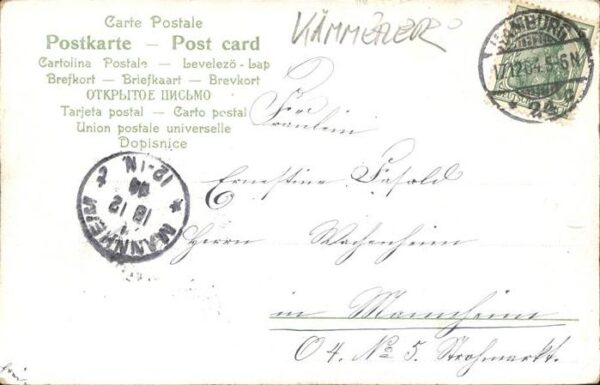 Carte Postale
Postkarte — Post card
Cartolina Postale — Levelező-Lap
Brefkort — Briefkaart — Brevkort
ОТКРЫТОЕ ПИСЬМО
Tarjeta postal — Carto postal
Union postale universelle
Dopisnice
KÄMMERER
HAMBURG
17.12.04.5-6N
MANNHEIM
18 12
04
12-1N.
Für
Fräulein
Ernestine Fasold
Herrn Wachenheim
in Mannheim
O 4. No 5. Strohmarkt.